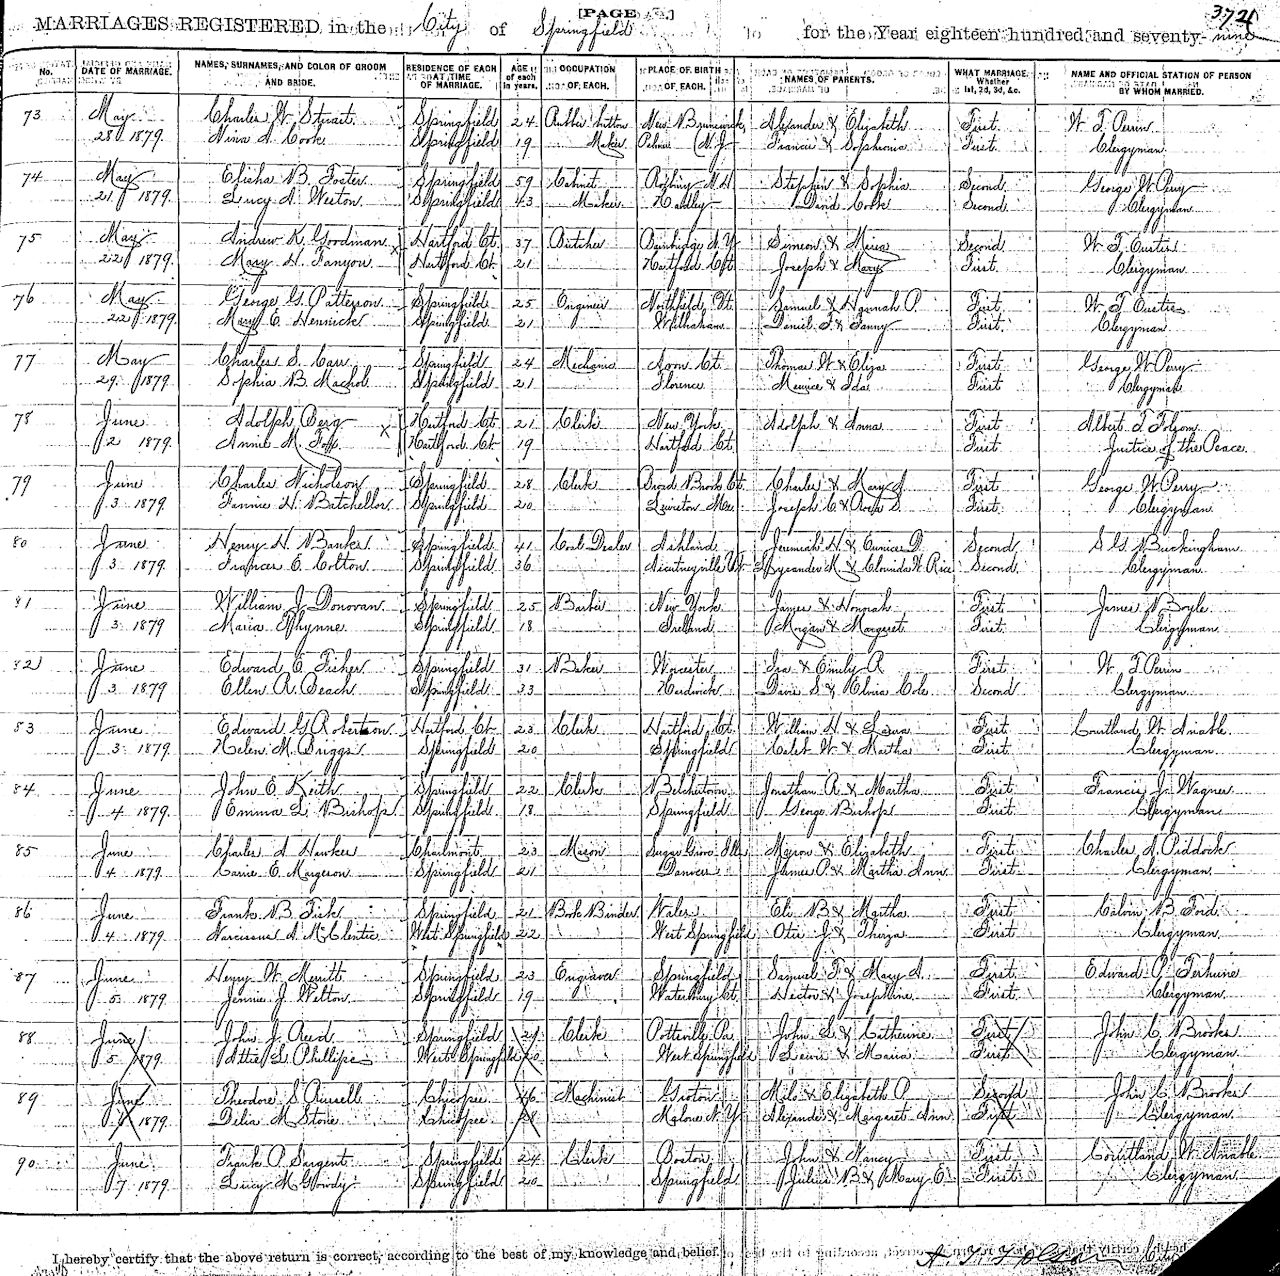 [PAGE
374
MARRIAGES REGISTERED in the City of Springfield for the Year eighteen hundred and seventy-nine
No. DATE OF MARRIAGE. NAMES, SURNAMES, AND COLOR OF GROOM AND BRIDE. RESIDENCE OF EACH AT TIME OF MARRIAGE. AGE of each in years. OCCUPATION OF EACH. PLACE OF BIRTH OF EACH. NAMES OF PARENTS. WHAT MARRIAGE. Whether 1st, 2d, 3d, &c. NAME AND OFFICIAL STATION OF PERSON BY WHOM MARRIED.
73 May Charles W. Stuart Springfield 24 Button New Brunswick, Alexander & Elizabeth First W. T. Perrin
28 1879. Nina A. Cook Springfield 19 Maker (N. J. Francis & Sophronia First Clergyman
74 May Elisha B. Foster Springfield 59 Cabinet N. H. Stephen & Sophia Second George W. Perry
21 1879. Lucy A. Weston Springfield 43 Maker Hadley David Cook Second Clergyman
75 May Andrew K. Goodman x Hartford Ct. 37 Butcher Bainbridge N. Y. Simeon & Second W. T.
22 1879. Mary H. Hartford Ct. 21 Hartford Ct. Joseph & Mary First Clergyman
76 May George G. Patterson Springfield 25 Engineer Northfield, Vt. Samuel & Hannah P. First W. T.
22 1879. Mary E. Springfield 21 Wilbraham Daniel F. & Fanny First Clergyman
77 May Charles S. Carr Springfield 24 Mechanic Avon Ct. Thomas W. & Eliza First George W. Perry
29. 1879 Sophia B. Springfield 21 Florence & Ida First Clergyman
78 June Adolph Berg x Hartford Ct. 21 Clerk New York Adolph & Anna First Albert T. Folsom
2 1879. Annie M. Hartford Ct. 19 Hartford Ct. First Justice of the Peace.
79 June Charles Nicholson Springfield 28 Clerk Broad Brook Ct. Charles & Mary First George W. Perry
3 1879. Fannie H. Batchellor Springfield 20 Lewiston Me. Joseph C. & First Clergyman
80 June Henry H. Banks Springfield 41 Coal Dealer Ashland Jeremiah H. & Eunice D. Second S. G. Buckingham
3 1879. Frances E. Colton Springfield 36 Lysander & W. Rice Second Clergyman
81 June William J. Donovan Springfield 25 Barber New York James & Honnah First James Boyle
3 1879 Maria Springfield 18 Ireland Morgan & Margaret First Clergyman
82 June Edward E. Fisher Springfield 31 Baker Worcester Ira & Emily R. First W. T. Perrin
3 1879. Ellen R. Beach Springfield 33 Hardwick Cole Second Clergyman
83 June Edward G. Robertson Hartford Ct. 23 Clerk Hartford, Ct. William H. & Laura First Courtland W. Anable
3 1879 Helen M. Briggs Springfield 20 Springfield Caleb W. & Martha First Clergyman
84 June John E. Keith Springfield 22 Clerk Belchertown Jonathan R. & Martha First Francis J. Wagner
4 1879. Emma L. Bishop Springfield 18 Springfield George Bishop First Clergyman
85 June Charles A. Hawkes Charlmont 23 Mason Sugar Grove Ill. Myron & Elizabeth First Charles A. Piddock
4 1879. Carrie E. Margeson Springfield 21 Danvers James P. & Martha Ann First Clergyman.
86 June Frank B. Fisk Springfield 21 Book Binder Wales Eli B. & Martha First Calvin B. Ford
4 1879. Narcissus A. McClentic West Springfield 22 West Springfield Otis J. & Thirza First Clergyman.
87 June Henry W. Merritt Springfield 23 Engraver Springfield Samuel F. & Mary A. First Edward P. Terhune
5 1879 Jennie J. Welton Springfield 19 Waterbury Ct. Hector & Josephine First Clergyman.
88 June John J. Reed Springfield 24 Clerk Pottsville Pa. John L. & Catherine First John C. Brooks
5 1879. Attie L. Phillips West Springfield 20 West Springfield Lewis & Maria First Clergyman.
89 June Theodore S. Russell Chicopee 46 Machinist Groton Milo & Elizabeth P. Second John C. Brooks
1879. Delia M. Stone Chicopee Malone N. Y. Alexander & Margaret Ann First Clergyman.
90 June Frank P. Sargent Springfield 24 Clerk Boston John & Nancy First Courtland W. Anable
7 1879. Lucy M. Springfield 20 Springfield Julius B. & Mary O. First Clergyman.
I hereby certify that the above return is correct, according to the best of my knowledge and belief.